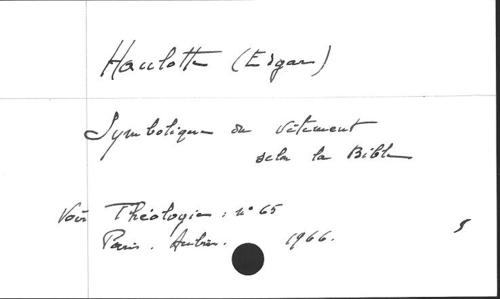 Haulotte (Edgar)
Symbolique du vêtement
selon la Bible
Voir Théologie : n° 65
Paris. Aubier. 1966.
5